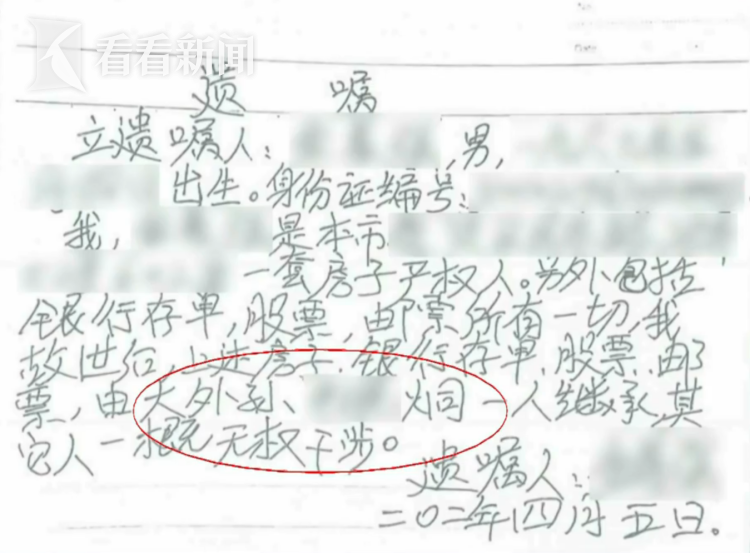 看看新闻
遗 嘱
立遗嘱人： ,男,
出生。身份证编号：
我, 是本市
一套房子产权人。另外包括
银行存单,股票,邮票所有一切,我
故世后,上述房子、银行存单、股票、邮
票,由大外孙、 炯一人继承,其
它人一概无权干涉。
遗嘱人：
二〇二年四月五日。